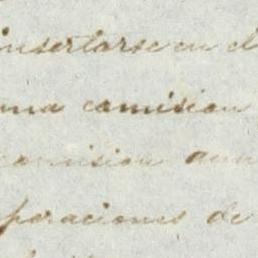 insertarse en el
una comision
comision aun
peraciones de